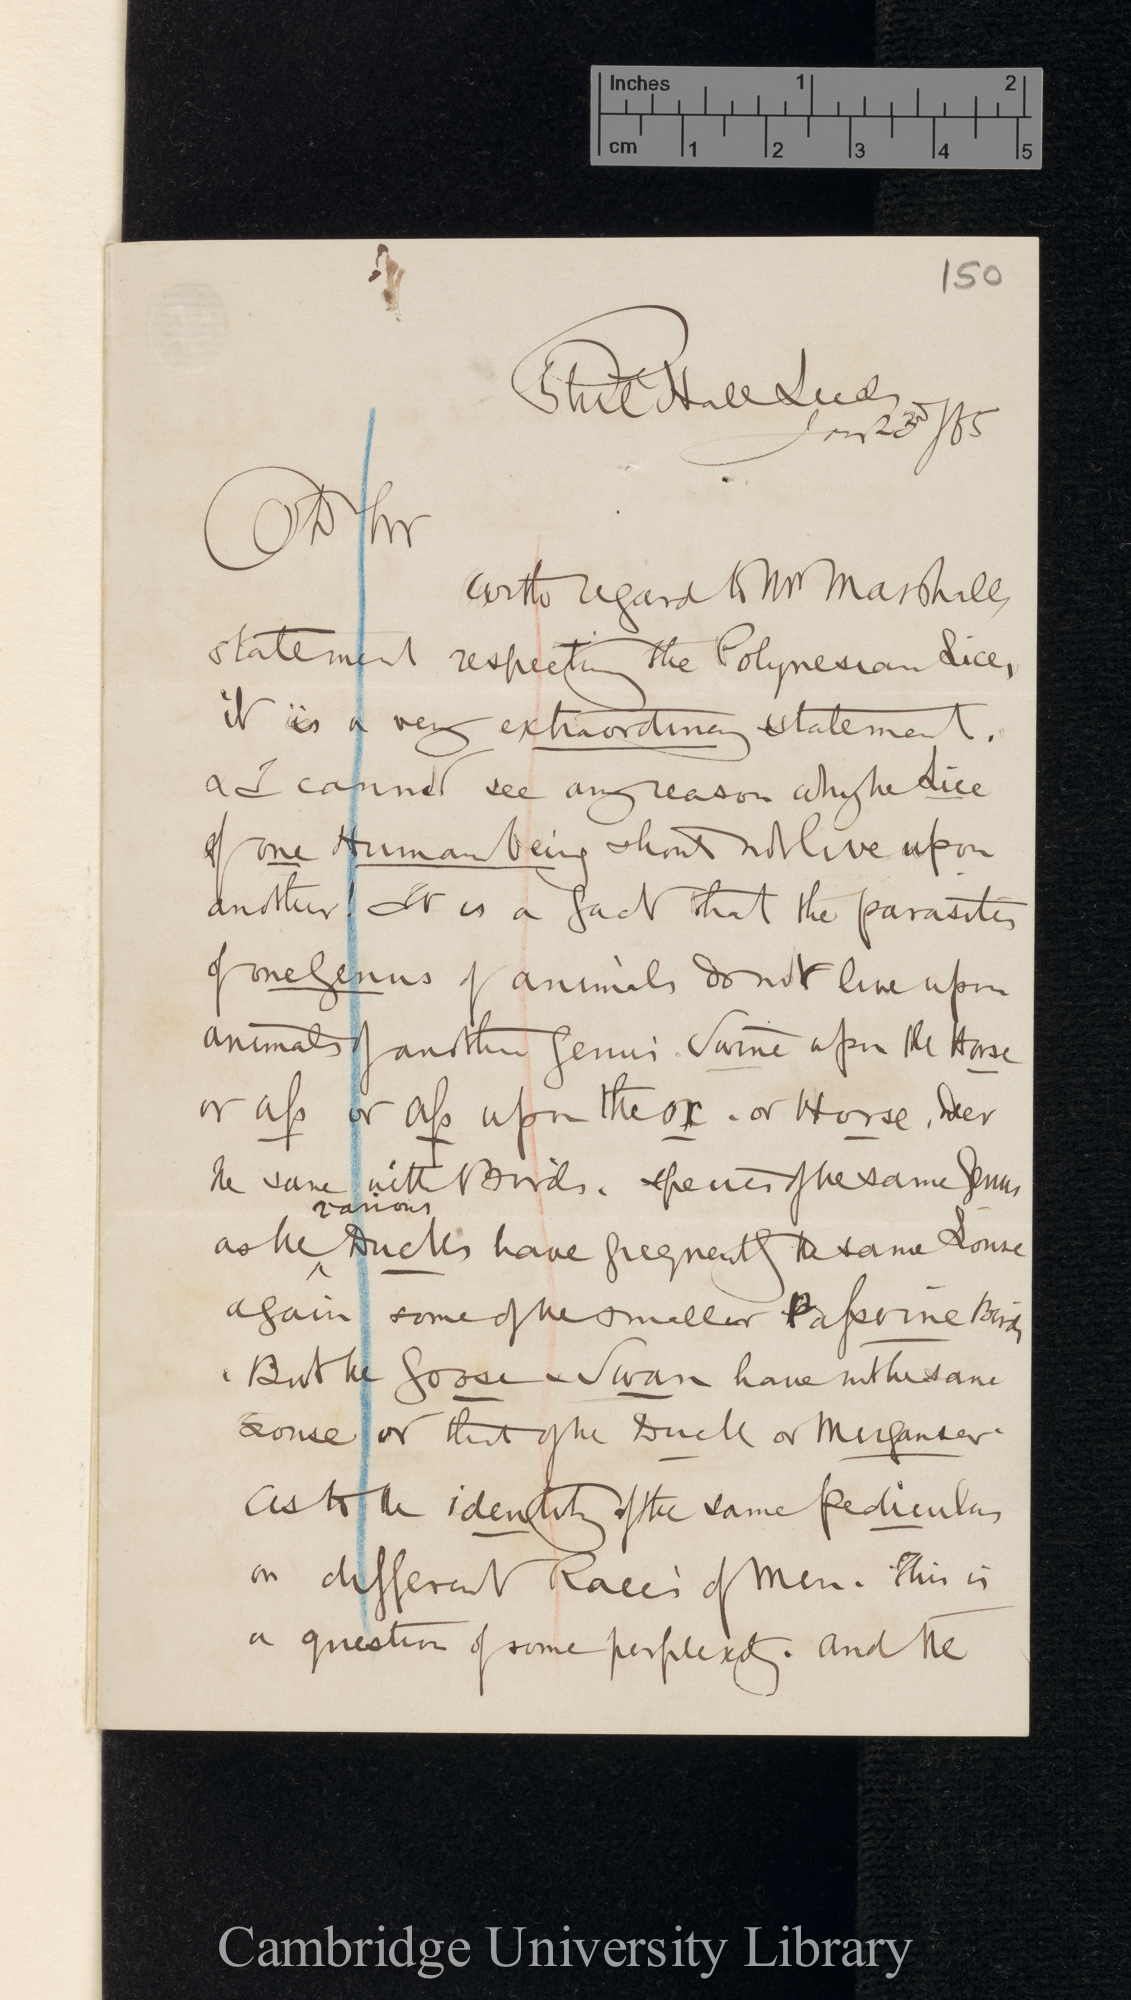 Inches 1 2
cm 1 2 3 4 5
150
Phil Hall Leeds
Jany 23rd /65
Dr Sir
With regard to Mr Marshalls
statement respecting the Polynesian Lice,
it is a very extraordinary statement.
& I cannot see any reason why the Lice
of one Human being should not live upon
another! It is a fact that the parasites
of one Genus of animals do not live upon
animals of another Genus. Swine upon the Horse
or aſs or aſs upon the ox. or Horse,
the same with Birds. species of the same Genus
various
as the ^ Ducks have freqnently the same Louse
again some of the smaller Paſserine Birds
. But the Goose & Swan have not the same
Louse or that of the Duck or Merganser.
As to the identity of the same pediculus
on different Races of Men. This is
a question of some perplexity. and the
Cambridge University Library